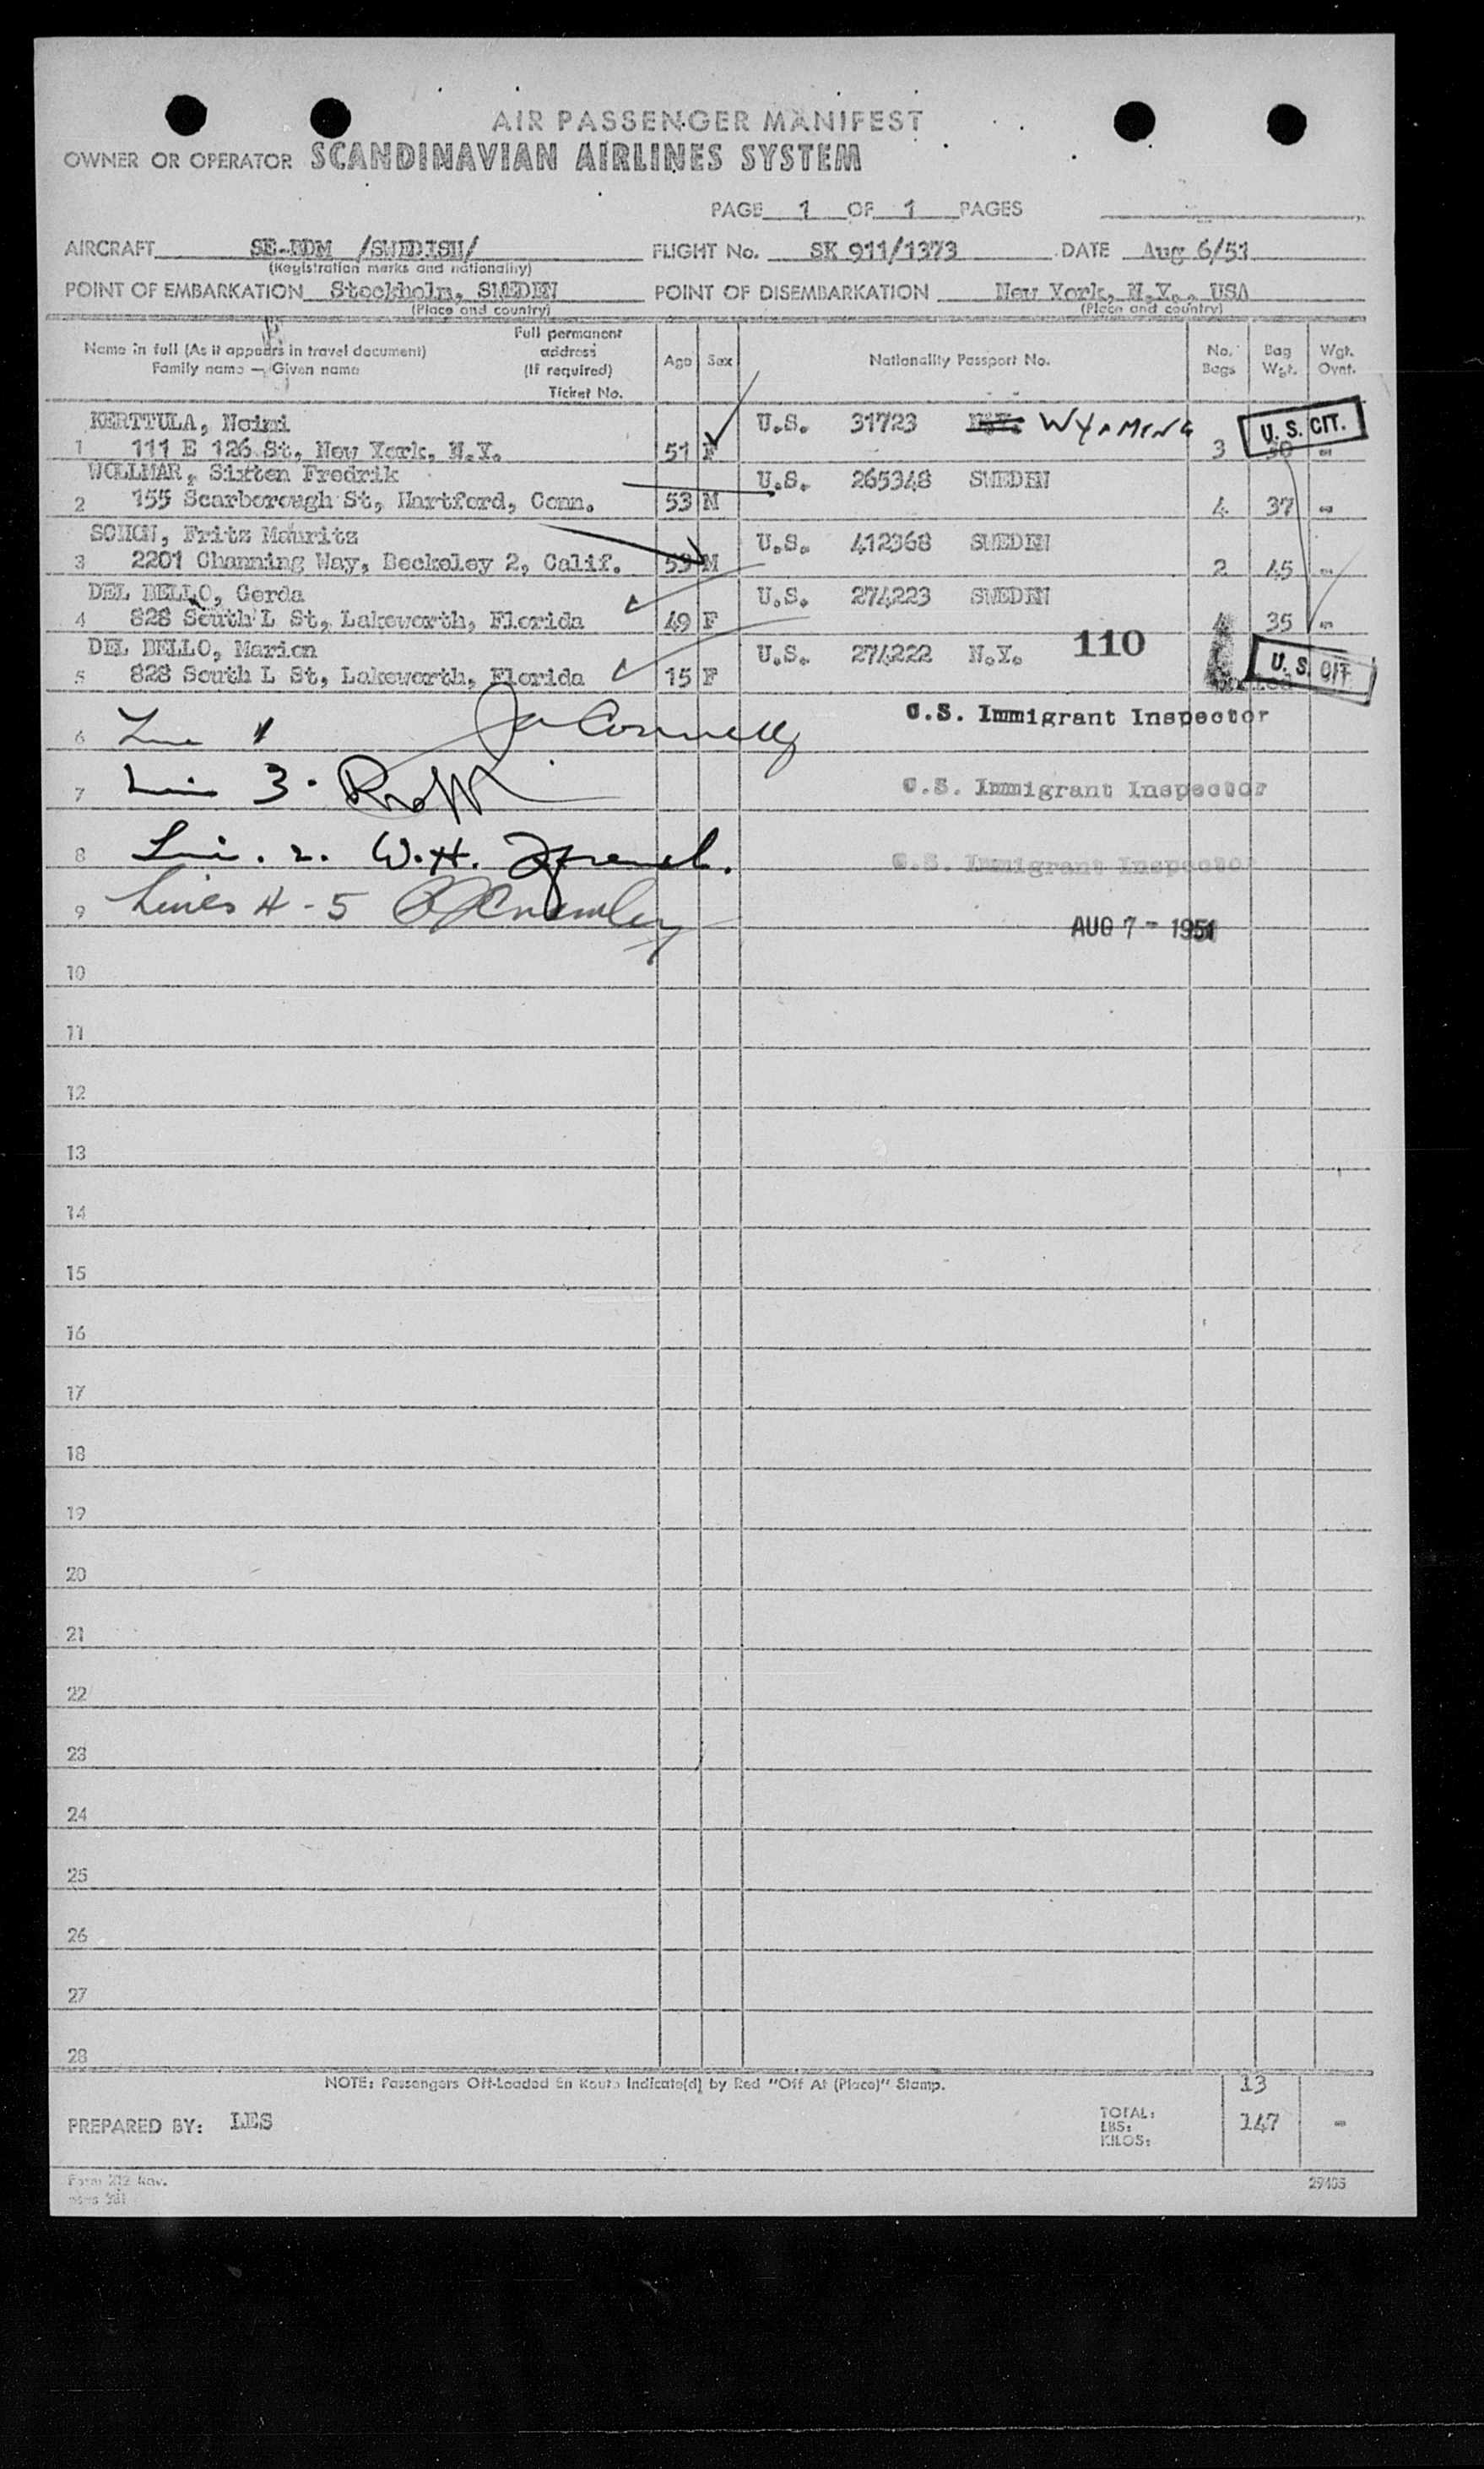 AIR PASSENGER MANIFEST
OWNER OR OPERATOR SCANDINAVIAN AIRLINES SYSTEM
PAGE 1 OF 1 PAGES
AIRCRAFT SE-BDM /SWEDISH/ FLIGHT No. SK 911/1373 DATE Aug 6/51
(Registration marks and nationality)
POINT OF EMBARKATION Stockholm, SWEDEN POINT OF DISEMBARKATION New York, N.Y., USA
(Place and country) (Place and country)
Name in full (As it appears in travel document) Family name — Given name Full permanent address (If required) Ticket No. Age Sex Nationality Passport No. No. Bags Bag Wgt. Wgt. Ovnt.
KERTTULA, Noimi U.S. 31723 WYOMING U. S. CIT.
1 111 E 126 St, New York, N.Y. 51 F 3 30 -
WOLLMAR, Sixten Fredrik U.S. 265348 SWEDEN
2 155 Scarborough St, Hartford, Conn. 53 M 4 37 -
SCHON, Fritz Mauritz U.S. 412368 SWEDEN
3 2201 Channing Way, Beckeley 2, Calif. 53 M 2 45 -
DEL BELLO, Gerda U.S. 274223 SWEDEN
4 828 South L St, Lakeworth, Florida 49 F 4 35 -
DEL BELLO, Marion U.S. 274222 N.Y. 110 U. S. CIT
5 828 South L St, Lakeworth, Florida 15 F
6 Line 1 Connelly U.S. Immigrant Inspector
7 Line 3. U.S. Immigrant Inspector
8 Lin. 2. W.H. U.S. Immigrant Inspector
9 Lines 4-5 AUG 7 - 1951
10
11
12
13
14
15
16
17
18
19
20
21
22
23
24
25
26
27
28
NOTE: Passengers Off-Loaded En Route Indicate(d) by Red "Off At (Place)" Stamp. 13
PREPARED BY: LES TOTAL: LBS: KILOS: 147 -
Form 212 Rev.
29405